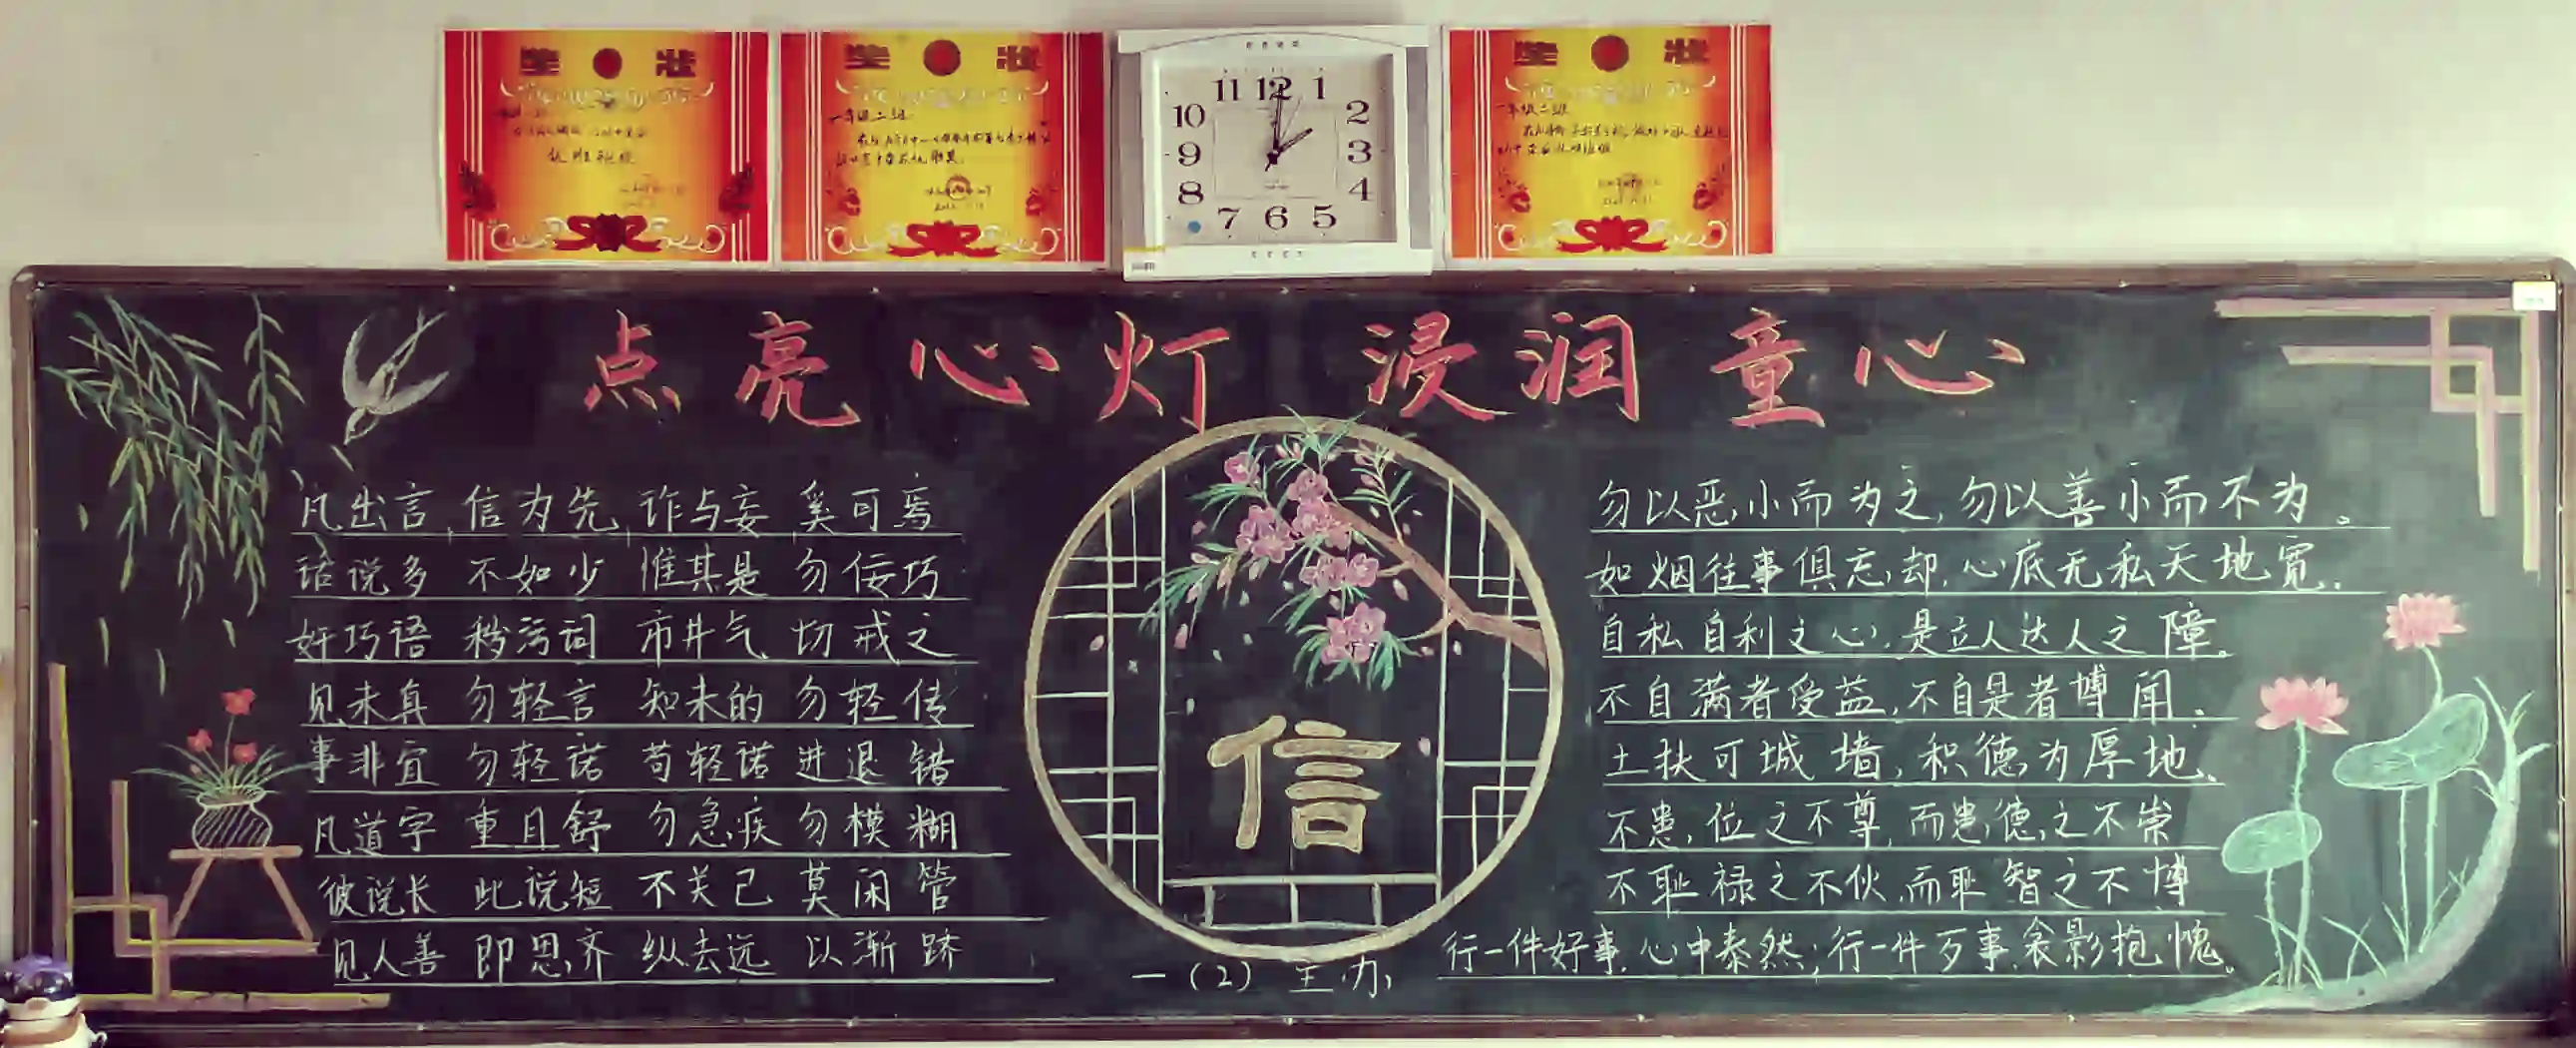 奖 状
奖 状
一年级二班
奖 状
一年级二班
11 12 1
10 2
9 3
8 4
7 6 5
点亮心灯 浸润童心
凡出言,信为先,诈与妄,奚可焉
话说多 不如少 惟其是 勿佞巧
奸巧语 秽污词 市井气 切戒之
见未真 勿轻言 知未的 勿轻传
事非宜 勿轻诺 苟轻诺 进退错
凡道字 重且舒 勿急疾 勿模糊
彼说长 此说短 不关己 莫闲管
见人善 即思齐 纵去远 以渐跻
信
一(2) 主办
勿以恶小而为之,勿以善小而不为。
如烟往事俱忘却,心底无私天地宽.
自私自利之心,是立人达人之障.
不自满者受益,不自是者博闻.
土扶可城墙,积德为厚地.
不患,位之不尊,而患,德,之不崇
不耻禄之不伙,而耻智之不博
行一件好事,心中泰然;行一件歹事,衾影抱愧。